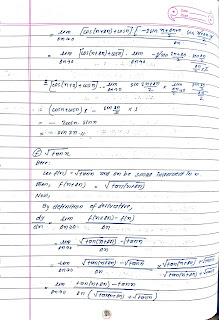 = lim δx→0 [cos(x+δx)+cosx] [-2sin x+δx+x/2 sin
= lim δx→0 [cos(x+δx)+cosx] lim δx→0 -2sin 2x+δx/2 sin δx/2
= [cos(x+0)+cosx] lim δx→0 sin 2x+δx/2 × lim δx→0 sin δx/2
= -(cosx+cosx) × sin 2x/2 × 1
= -2cosx. sinx
= - sin 2x
√tanx
Here,
Let f(x) = √tanx and δx be small increment in x.
then, f(x+δx) = √tan(x+δx)
Now,
By definition of derivative,
dy/dx = lim δx→0 f(x+δx) - f(x) / δx
= lim δx→0 √tan(x+δx) - √tanx / δx
= lim δx→0 √tan(x+δx) - √tanx / δx × √tan(x+δx) + √tanx / √tan(x+δx) + √tanx
= lim δx→0 tan(x+δx) - tanx / δx (√tan(x+δx) + √tanx)